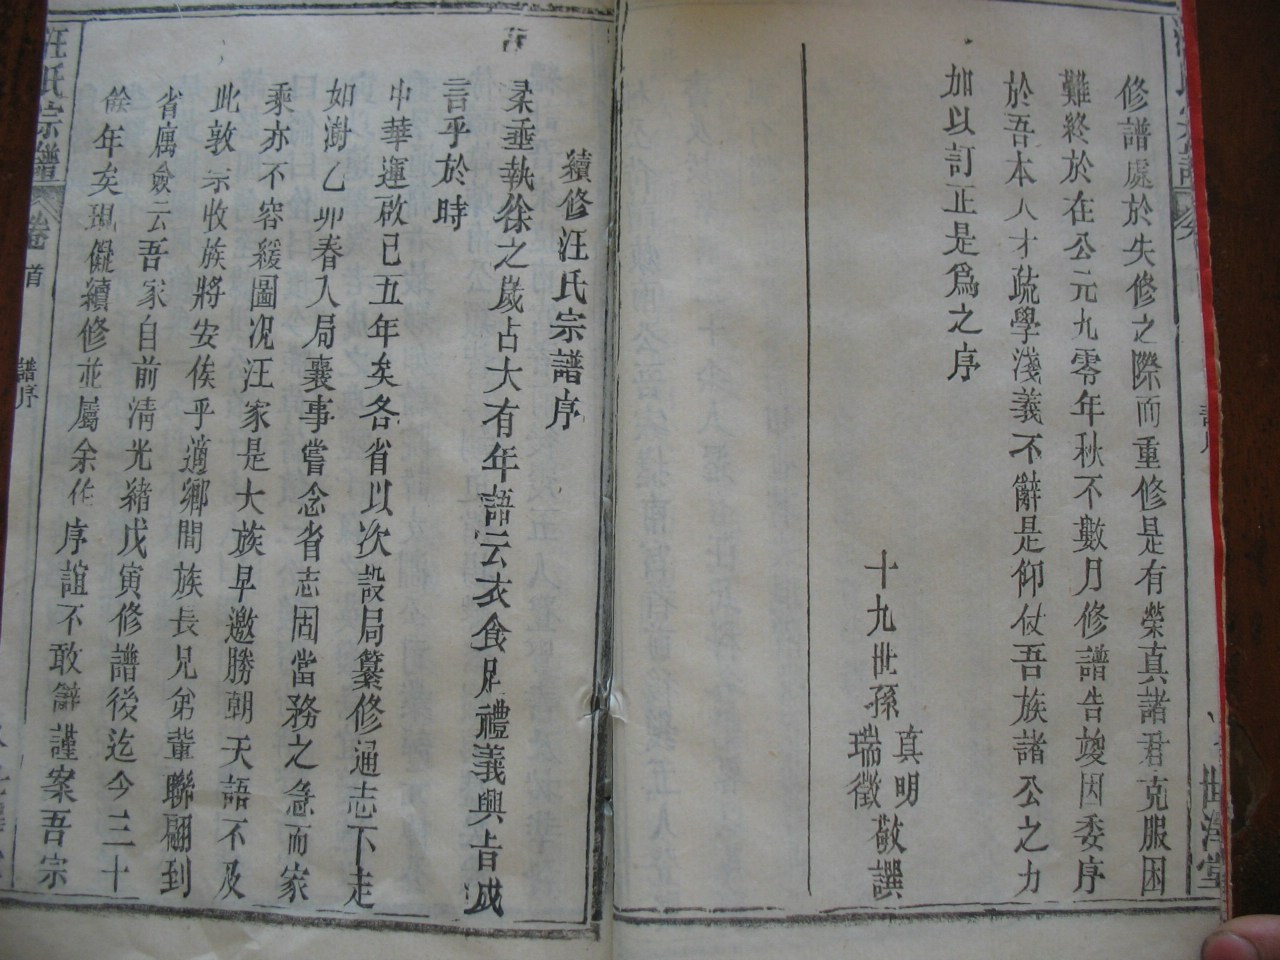 修譜處於失修之際而重修是有榮真諸君克服困
難終於在公元九零年秋不數月修譜告竣因委序
於吾本人才疏學淺義不辭是仰仗吾族諸公之力
加以訂正是爲之序
十九世孫 真明 瑞徵 敬譔
續修汪氏宗譜序
柔垂執徐之歲占大有年語云衣食足禮義興旨哉
言乎於時
中華運啟已五年矣各省以次設局纂修通志下走
如澍乙卯春入局襄事嘗念省志固當務之急而家
乘亦不容緩圖況汪家是大族早邀勝朝天語不及
此敦宗收族將安俟乎適鄉間族長兄弟輩聯翩到
省寓僉云吾家自前清光緒戊寅修譜後迄今三十
餘年矣現儗續修並屬余作序誼不敢辭謹案吾宗
汪氏宗譜 卷首 譜序